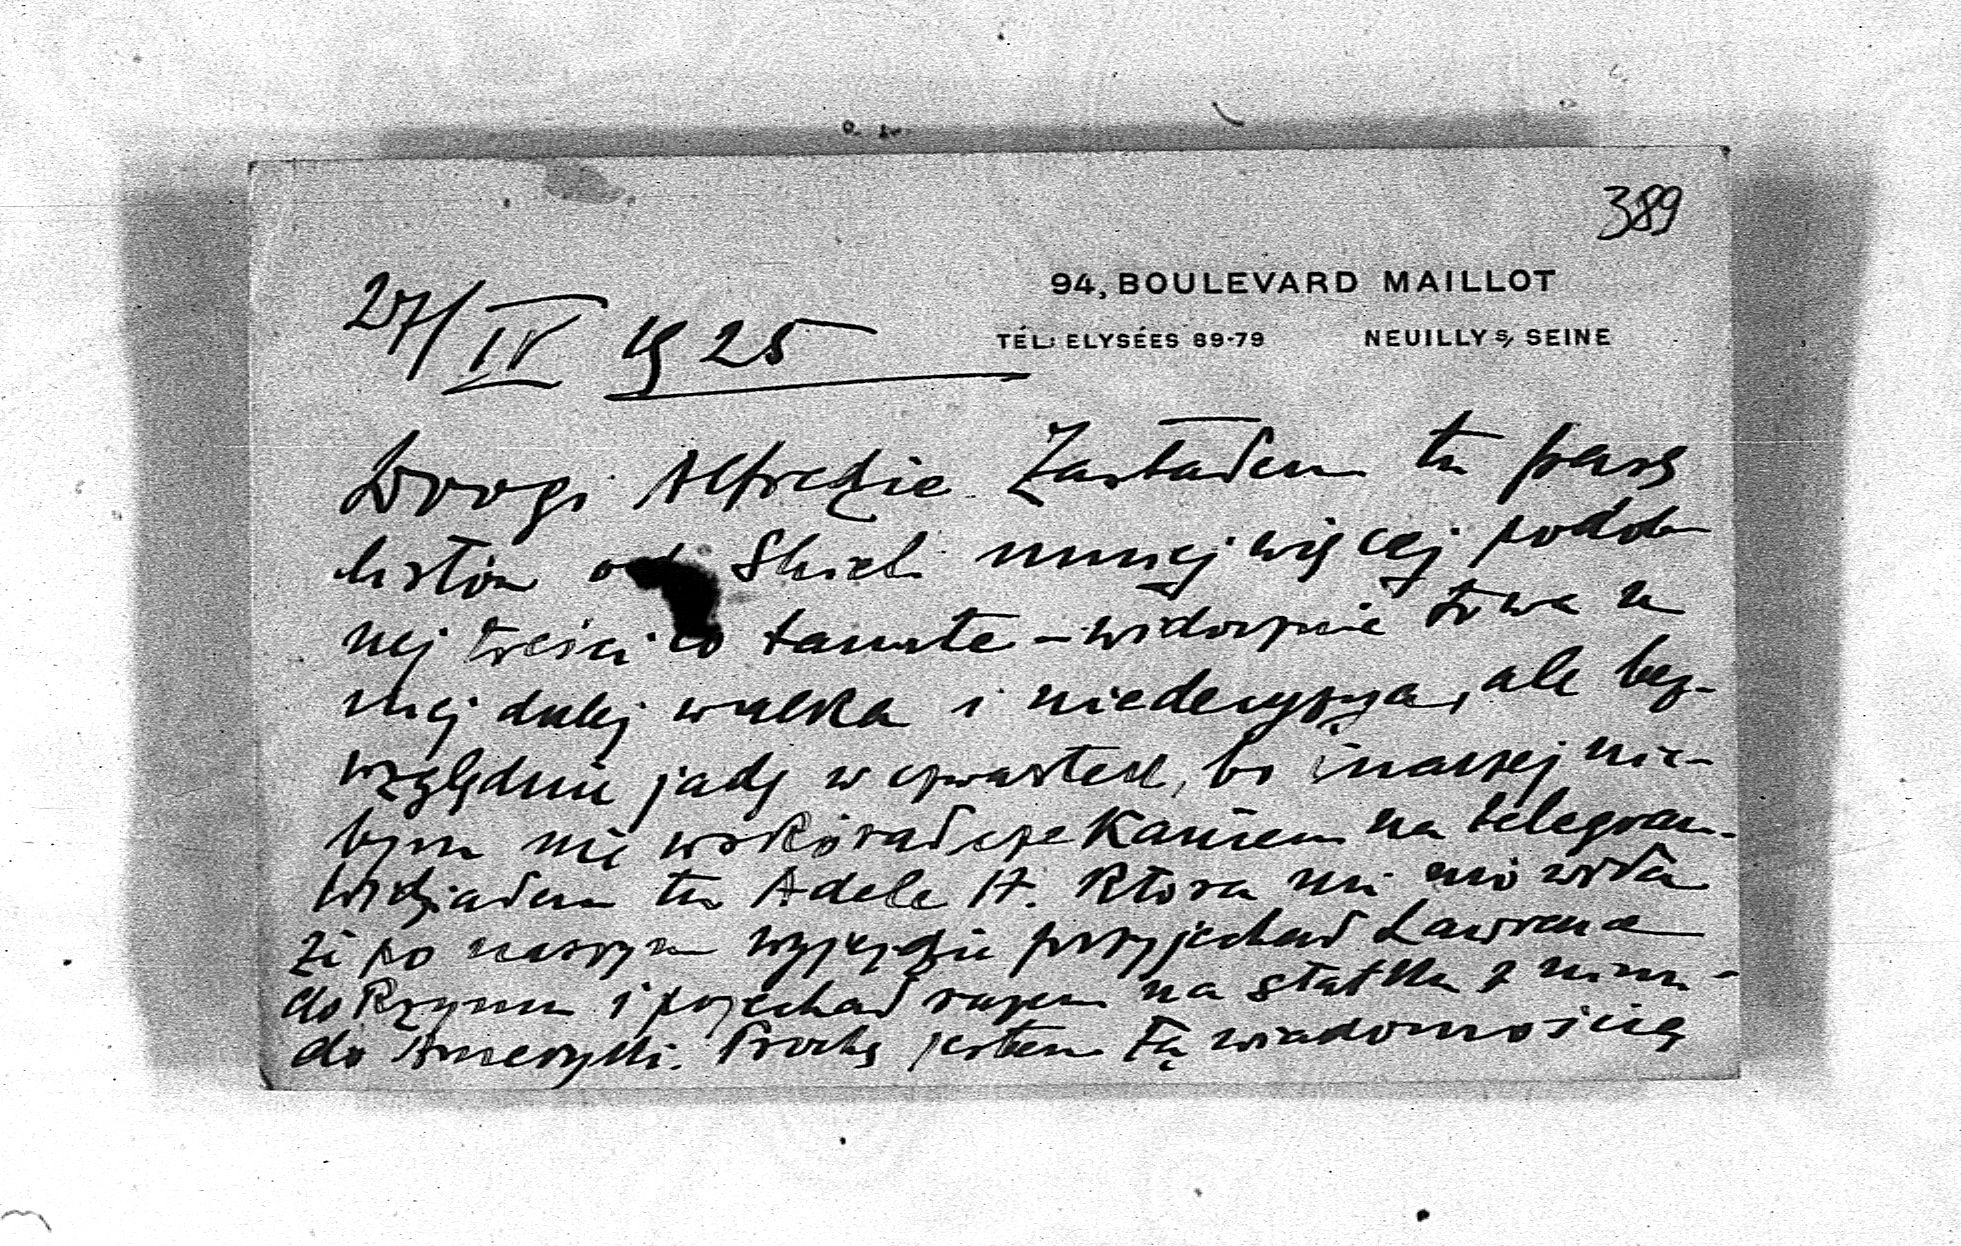 389
94, BOULEVARD MAILLOT
TÉL: ELYSÉES 89-79 NEUILLY S/ SEINE
27/IV 1925
Drogi Alfredzie Zastałem tu parę
listów od mniej więcej podob
nej treści co tamte – widocznie trwa u
niej dalej walka i niedecyzya, ale bez-
względnie jadę w czwartek, bo inaczej nic-
bym nie wskórał czekaniem na telegram.
Widziałem tu Adele H. która mi mówiła
że po naszym wyjeździe przyjechał Lawrence
do Rzymu i pojechał razem na statku z nim-
do Ameryki. Trochę jestem tą wiadomością